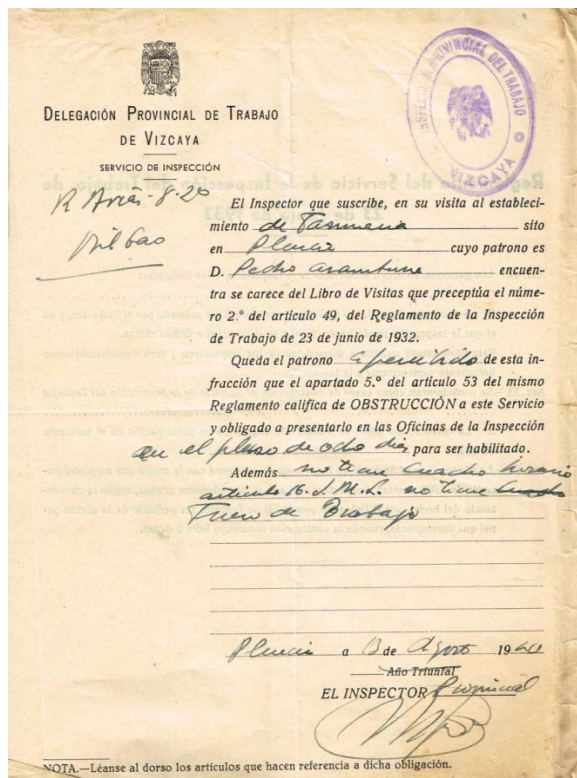 DELEGACIÓN PROVINCIAL DE TRABAJO
DE VIZCAYA
SERVICIO DE INSPECCIÓN
INSPECCIÓN PROVINCIAL DEL TRABAJO
VIZCAYA
Bilbao
El Inspector que suscribe, en su visita al estableci-
miento de sito
en Plencia cuyo patrono es
D. Pedro encuen-
tra se carece del Libro de Visitas que preceptúa el núme-
ro 2.º del artículo 49, del Reglamento de la Inspección
de Trabajo de 23 de junio de 1932.
Queda el patrono apercibido de esta in-
fracción que el apartado 5.º del artículo 53 del mismo
Reglamento califica de OBSTRUCCIÓN a este Servicio
y obligado a presentarlo en las Oficinas de la Inspección
en el plazo de ocho dias para ser habilitado.
Además no tiene cuadro horario
articulo no tiene
Fuero de Trabajo
Plencia a 13 de Agosto 1940
Año Triunfal
EL INSPECTOR Provincial
NOTA.—Léanse al dorso los artículos que hacen referencia a dicha obligación.